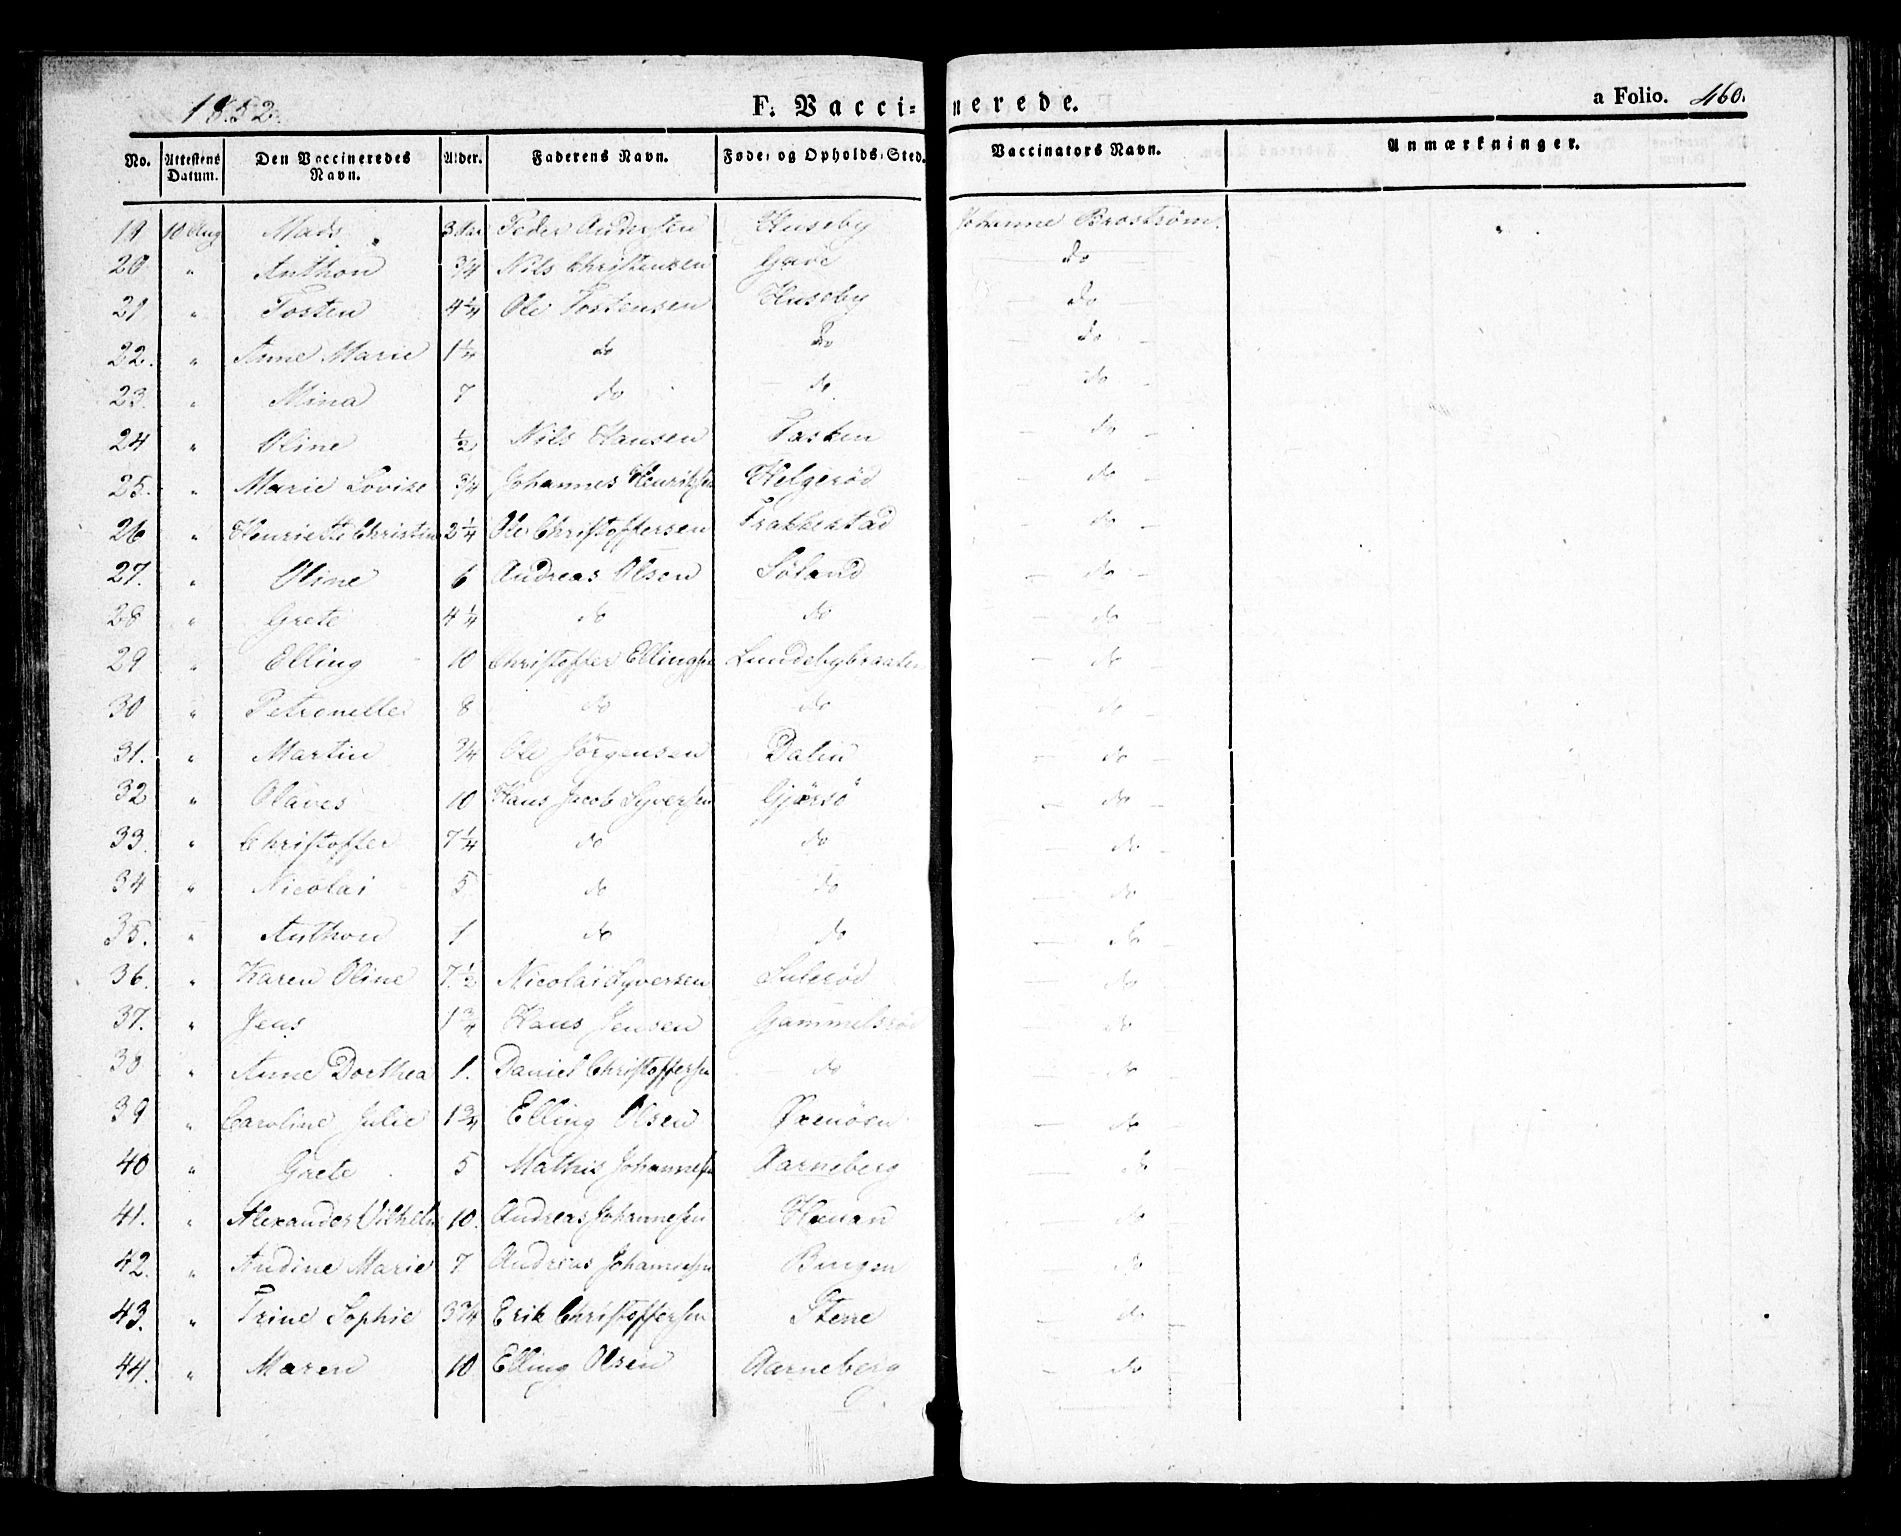 1852. F. Vaccinerede. a Folio. 460.
No. Attestens Datum. Den Vaccineredes Navn. Alder. Faderens Navn. Føde- og Opholds-Sted. Vaccinators Navn. Anmærkninger.
19 10 Aug Mads 3 Peder Andersen Huseby Johanne Broström.
20 " Anthon 3/4 Nils Christensen do
21 " Tosten 4 1/4 Ole Tostensen Huseby do
22. " Anne Marie 1 1/4 do do do
23. " Mina 7 do do do
24 " Oline 1/2 Nils Hansen Tasken do
25. " Marie Lovise 3/4 Johannes Henriksen Helgeröd do
26 " Henriette Christine 2 1/4 Ole Christoffersen Frakkestad do
27. " Oline 6 Andreas Olsen Söland do
28 " Grete 4 1/4 do do do
29 " Elling 10 Christoffer Ellingsen Lundebybraaten do
30 " Petronelle 8 do do do
31. " Martin 3/4 Ole Jörgensen Dalen do
32 " Olaves 10 Hans Jacob Syversen Gjærsö do
33. " Christoffer 7 1/4 do do do
34 " Nicolai 5 do do do
35. " Anthon 1 do do do
36. " Karen Oline 7 1/2 Nicolai Syversen Suleröd do
37. " Jens 1 3/4 Hans Jensen Gammelsröd do
38 " Anne Dorthea 1. Daniel Christoffersen do do
39 " Caroline Julie 1 3/4 Elling Olsen Öxenösen do
40 " Grete 5 Mathis Johannesen Aarneberg do
41. " Alexander Vilhelm 10. Andreas Johannesen Hauan do
42. " Andine Marie 7 Andreas Johannesen Bingen do
43. " Trine Sophie 3 3/4 Erik Christoffersen Stene do
44. " Maren 10 Elling Olsen Aarneberg do